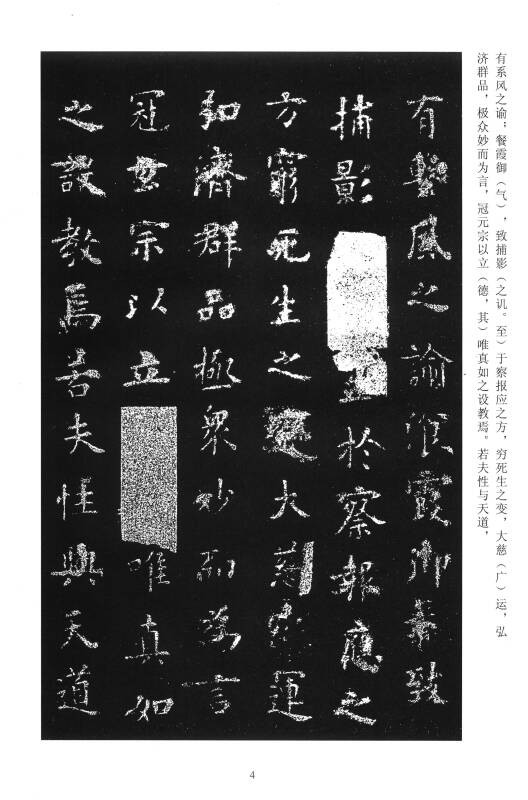 有系风之谕；餐霞御（气），致捕影（之讥。至）于察报应之方，穷死生之变，大慈（广）运，弘
济群品，极众妙而为言，冠元宗以立（德，其）唯真如之设教焉。若夫性与天道，
有繫風之諭湌霞御氣致
捕影至於察報應之
方窮死生之變大慈運
弘濟群品極衆妙而為言
冠宗以立唯真如
之設教焉若夫性與天道
4